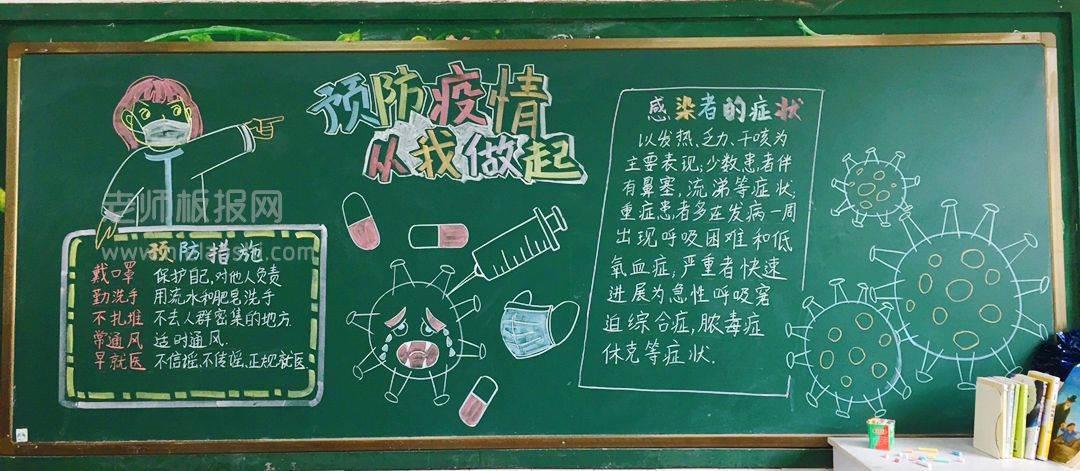 预防疫情
从我做起
老师板报网
预防措施
戴口罩 保护自己,对他人负责
勤洗手 用流水和肥皂洗手
不扎堆 不去人群密集的地方.
常通风 适时通风.
早就医 不信谣、不传谣、正规就医
感染者的症状
以发热、乏力、干咳为
主要表现,少数患者伴
有鼻塞,流涕等症状.
重症患者多在发病一周
出现呼吸困难和低
氧血症,严重者快速
进展为急性呼吸窘
迫综合症,脓毒症
休克等症状.